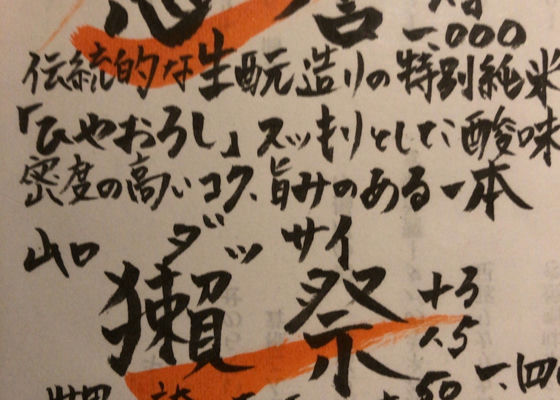 一、000
伝統的な生酛造りの特別純米
「ひやおろし」スッキリとした酸味
密度の高いコク、旨みのある一本
山口
ダッサイ
獺祭
+3